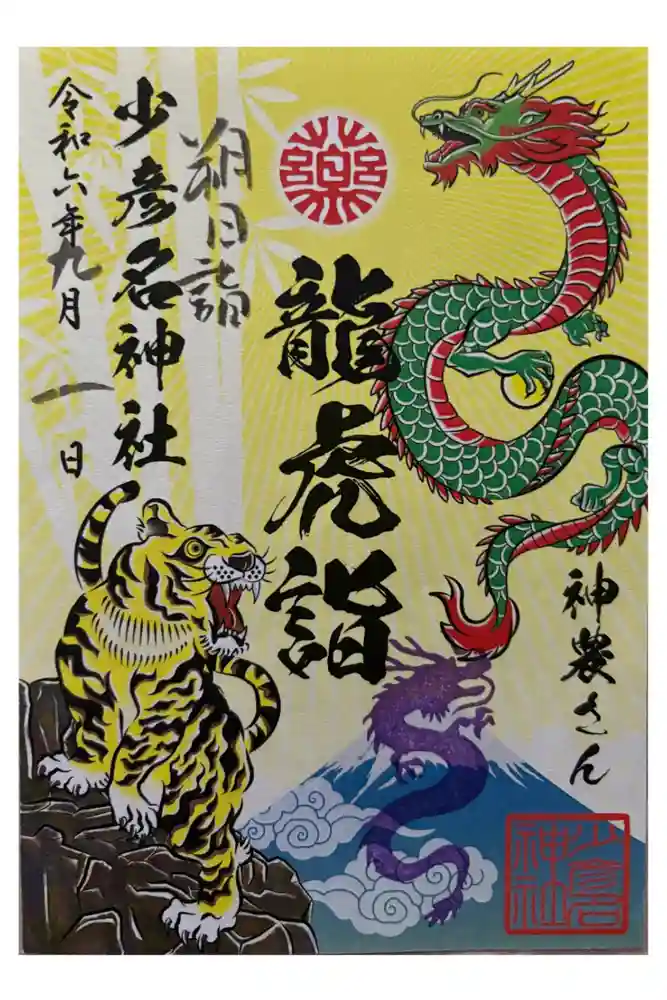 神農さん
龍虎詣
朔日詣
少彦名神社
令和六年九月一日
薬
少彦名
神社